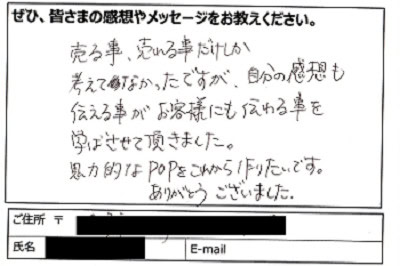 ぜひ、皆さまの感想やメッセージをお教えください。
売る事、売れる事だけしか
考えてなかったですが、自分の感想も
伝える事がお客様にも伝わる事を
学ばさせて頂きました。
魅力的なPOPをこれから作りたいです。
ありがとうございました.
ご住所 〒
氏名
E-mail